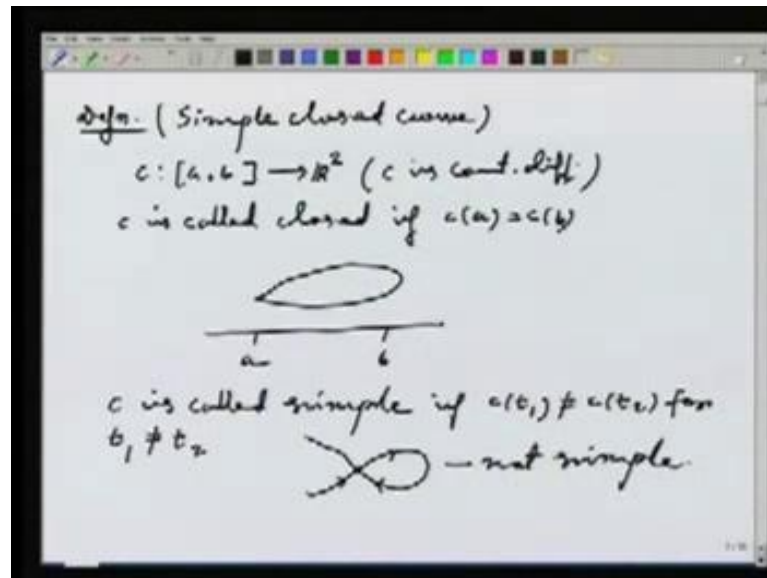 Defn. (Simple closed curve)
c : [a, b] → ℝ² (c is cont. diff.)
c is called closed if c(a) = c(b)
a b
c is called simple if c(t₁) ≠ c(t₂) for
t₁ ≠ t₂ — not simple.